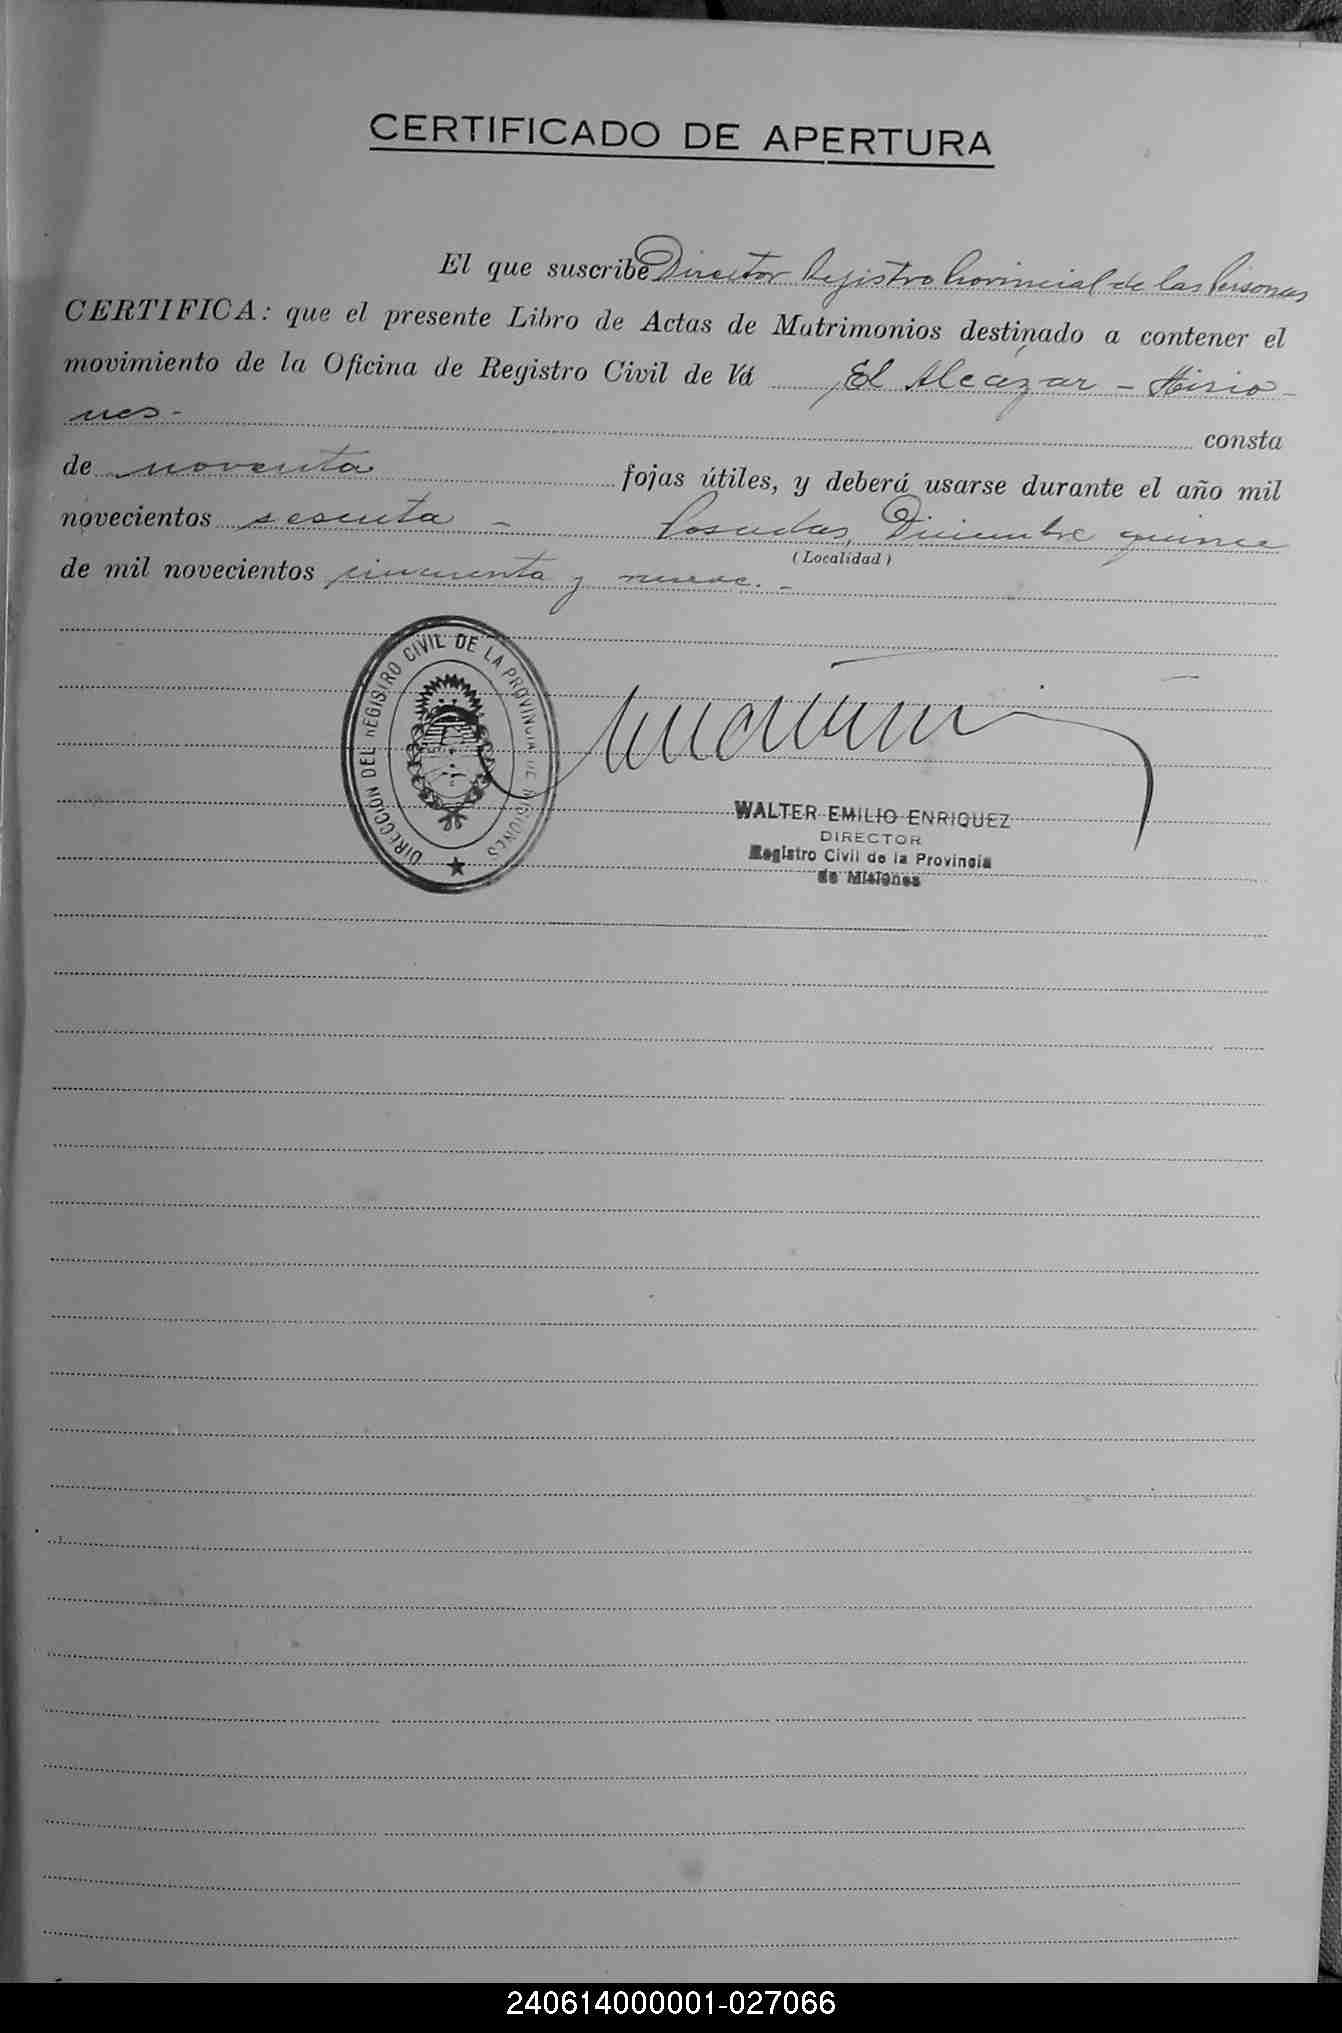 CERTIFICADO DE APERTURA
El que suscribe Director Registro Provincial de las Personas
CERTIFICA: que el presente Libro de Actas de Matrimonios destinado a contener el
movimiento de la Oficina de Registro Civil de Vá El Alcázar - Misio-
nes.- consta
de noventa fojas útiles, y deberá usarse durante el año mil
novecientos sesenta - Posadas, Diciembre quince
(Localidad)
de mil novecientos cincuenta y nueve.-
DIRECCIÓN DEL REGISTRO CIVIL DE LA PROVINCIA DE MISIONES
WALTER EMILIO ENRIQUEZ
DIRECTOR
Registro Civil de la Provincia
de Misiones
240614000001-027066